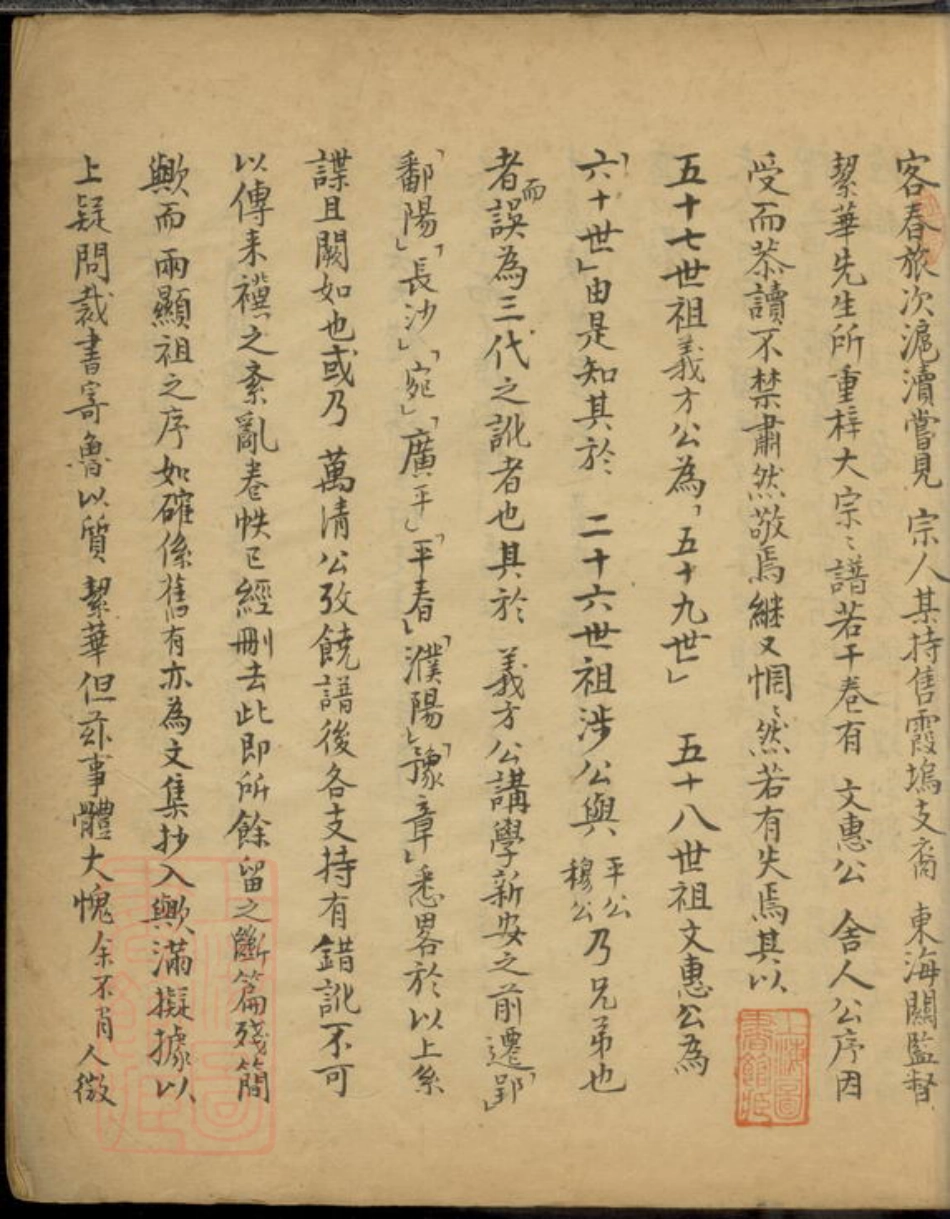 客春旅次滬瀆嘗見 宗人某持售霞塢支裔 東海關監督
絜華先生所重梓大宗〻譜若干卷有 文惠公 舍人公序因
受而恭讀不禁肅然敬焉繼又惘〻然若有失焉其以
五十七世祖義方公為「五十九世」 五十八世祖文惠公為
「六十世」由是知其於 二十六世祖涉公與 平公 穆公 乃兄弟也
者而誤為三代之訛者也其於 義方公講學新安之前遷「郢」
「鄱陽」「長沙」「宛」「廣平」「平春」「濮陽」「豫章」悉畧於以上系
諜且闕如也或乃 萬清公攷饒譜後各支持有錯訛不可
以傳来禩之紊亂卷帙已經刪去此即所餘留之斷篇殘簡
歟而 兩顯祖之序如確係舊有亦為文集抄入歟滿擬據以
上疑問裁書寄魯以質 絜華但茲事體大愧 余不肖人微
上海圖書館藏